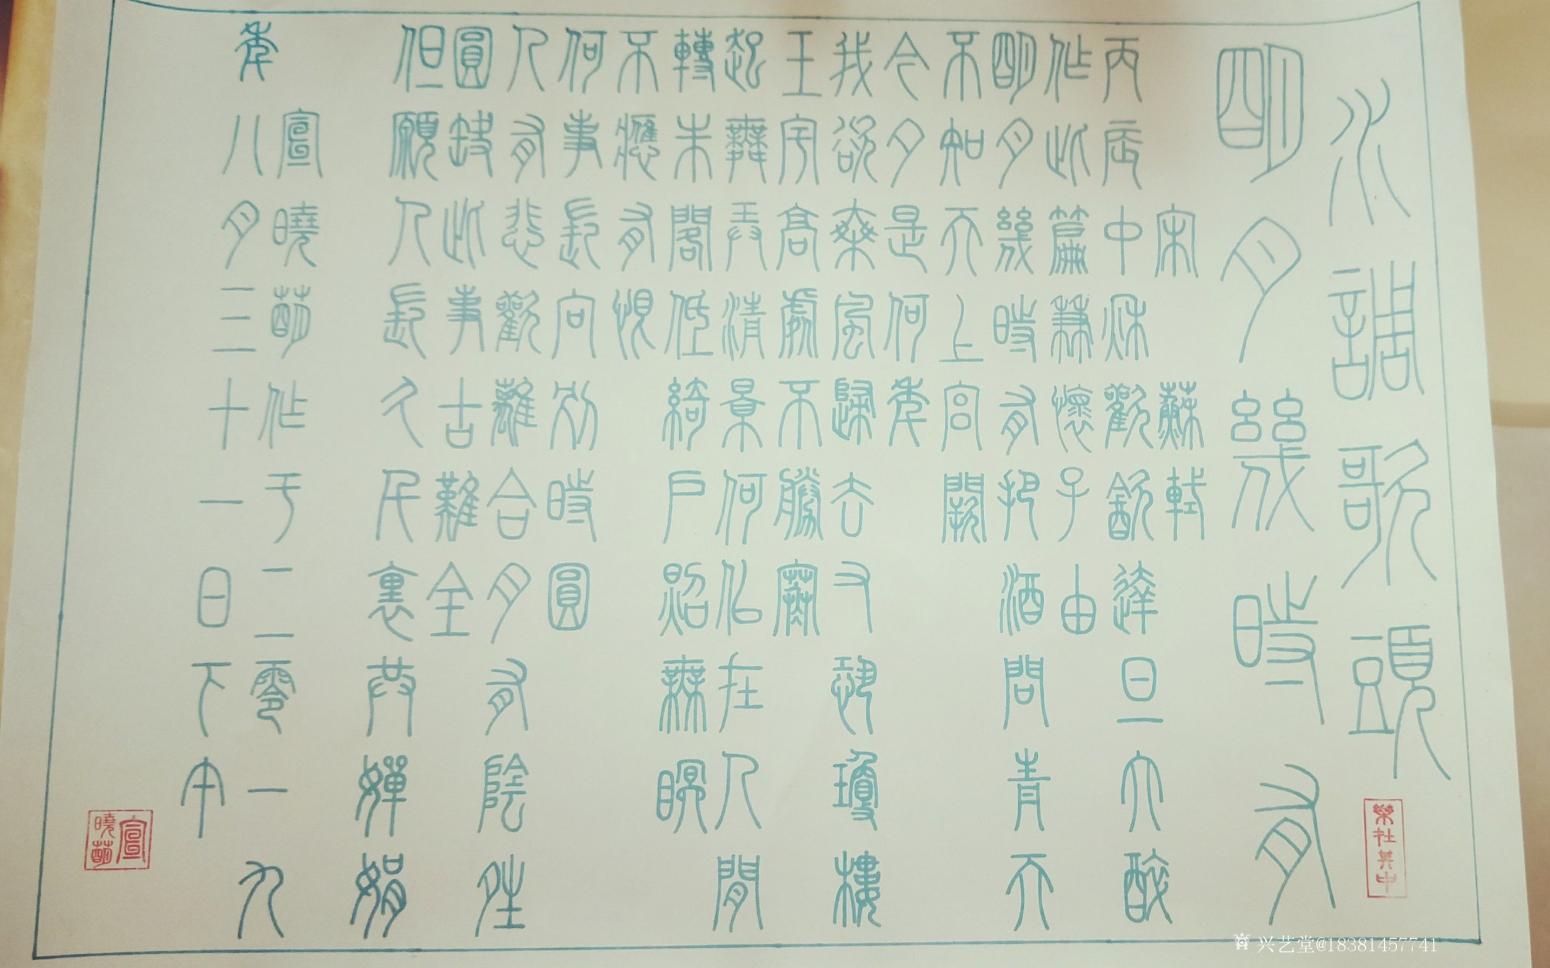 水調歌頭
明月幾時有
宋蘇軾
丙辰中秋歡飲達旦大醉
作此篇兼懷子由
明月幾時有把酒問青天
不知天上宮闕
今夕是何年
我欲乘風歸去又恐瓊樓
玉宇高處不勝寒
起舞弄清景何似在人間
轉朱閣低綺戶照無眠
不應有恨
何事長向別時圓
人有悲歡離合月有陰晴
圓缺此事古難全
但願人長久千裏共嬋娟
宣曉萌作于二零一九
年八月三十一日下午
樂在其中
宣曉萌
兴艺堂@18381457741